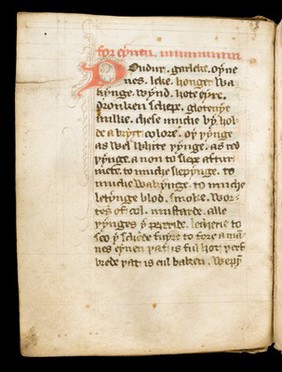 for eynen
Poudur. garleke. oyne
nes. leke. honger Wa
kynge. wynd. hote eyre.
dronken schepe. glotenye
mylke. chese muche by hol
de a bryȝt colore. oþ þynge
as wel white þynge. as red
þynge. a non to slepe aftur
mete. to muche slepynge. to
muche wakynge. to muche
letynge blod. smoke. Wor-
tes of col. mustarde. alle
þynges þt
to
se þt
fuyre to fore a ma
nes eynen þat is ful hot
brede þat is eul baken. Wepy